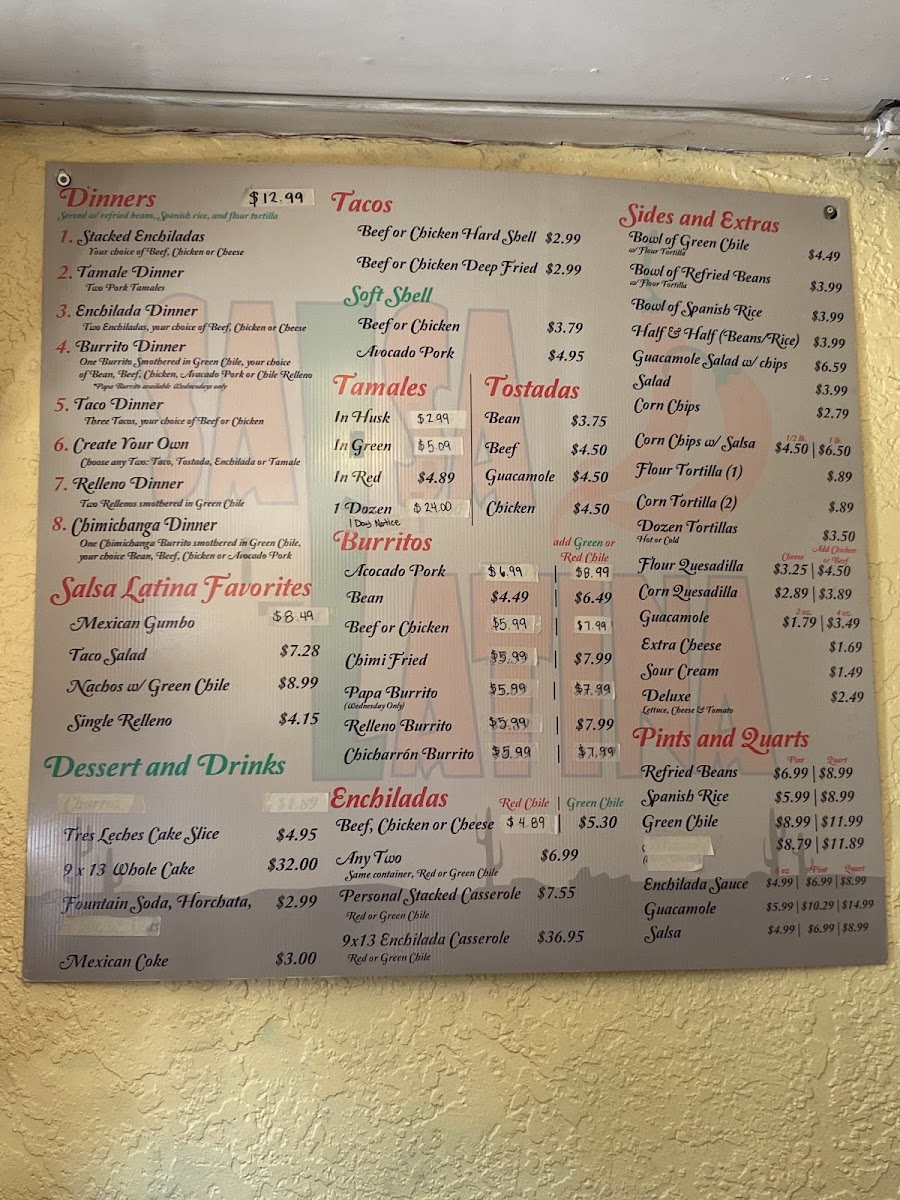 Dinners $12.99
Served w/ refried beans, Spanish rice, and flour tortilla
1. Stacked Enchiladas
Your choice of Beef, Chicken or Cheese
2. Tamale Dinner
Two Pork Tamales
3. Enchilada Dinner
Two Enchiladas, your choice of Beef, Chicken or Cheese
4. Burrito Dinner
One Burrito Smothered in Green Chile, your choice
of Bean, Beef, Chicken, Avocado Pork or Chile Relleno
*Papa Burrito available Wednesdays only
5. Taco Dinner
Three Tacos, your choice of Beef or Chicken
6. Create Your Own
Choose any Two: Taco, Tostada, Enchilada or Tamale
7. Relleno Dinner
Two Rellenos smothered in Green Chile
8. Chimichanga Dinner
One Chimichanga Burrito smothered in Green Chile,
your choice Bean, Beef, Chicken or Avocado Pork
Salsa Latina Favorites
Mexican Gumbo $8.49
Taco Salad $7.28
Nachos w/ Green Chile $8.99
Single Relleno $4.15
Dessert and Drinks
Churros $1.89
Tres Leches Cake Slice $4.95
9 x 13 Whole Cake $32.00
Fountain Soda, Horchata, $2.99
Mexican Coke $3.00
Tacos
Beef or Chicken Hard Shell $2.99
Beef or Chicken Deep Fried $2.99
Soft Shell
Beef or Chicken $3.79
Avocado Pork $4.95
Tamales
In Husk $2.99
In Green $5.09
In Red $4.89
1 Dozen $24.00
1 Day Notice
Tostadas
Bean $3.75
Beef $4.50
Guacamole $4.50
Chicken $4.50
Burritos add Green or
Red Chile
Acocado Pork $6.99 | $8.99
Bean $4.49 | $6.49
Beef or Chicken $5.99 | $7.99
Chimi Fried $5.99 | $7.99
Papa Burrito $5.99 | $7.99
(Wednesday Only)
Relleno Burrito $5.99 | $7.99
Chicharrón Burrito $5.99 | $7.99
Enchiladas Red Chile | Green Chile
Beef, Chicken or Cheese $4.89 | $5.30
Any Two $6.99
Same container, Red or Green Chile
Personal Stacked Casserole $7.55
Red or Green Chile
9x13 Enchilada Casserole $36.95
Red or Green Chile
Sides and Extras
Bowl of Green Chile $4.49
w/ Flour Tortilla
Bowl of Refried Beans $3.99
w/ Flour Tortilla
Bowl of Spanish Rice $3.99
Half & Half (Beans/Rice) $3.99
Guacamole Salad w/ chips $6.59
Salad $3.99
Corn Chips $2.79
1/2 lb. 1 lb.
Corn Chips w/ Salsa $4.50 | $6.50
Flour Tortilla (1) $.89
Corn Tortilla (2) $.89
Dozen Tortillas $3.50
Hot or Cold
Cheese Add Chicken
or Beef
Flour Quesadilla $3.25 | $4.50
Corn Quesadilla $2.89 | $3.89
2 oz. 4 oz.
Guacamole $1.79 | $3.49
Extra Cheese $1.69
Sour Cream $1.49
Deluxe $2.49
Lettuce, Cheese & Tomato
Pints and Quarts
Pint Quart
Refried Beans $6.99 | $8.99
Spanish Rice $5.99 | $8.99
Green Chile $8.99 | $11.99
$8.79 | $11.89
8 oz Pint Quart
Enchilada Sauce $4.99 | $6.99 | $8.99
Guacamole $5.99 | $10.29 | $14.99
Salsa $4.99 | $6.99 | $8.99
SALSA
LATINA